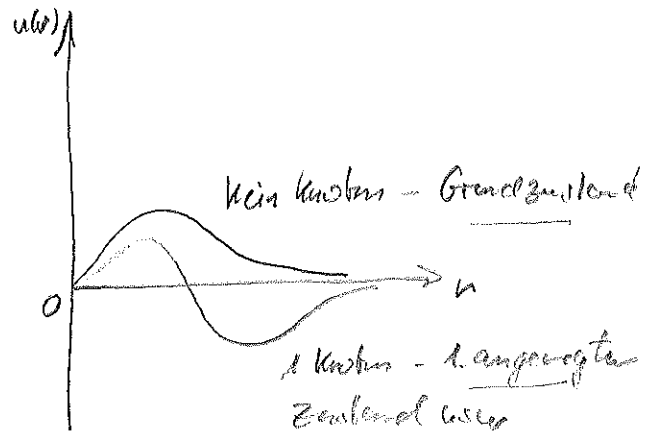 u(r)
kein Knoten - Grundzustand
0
r
1 Knoten - 1. angeregter
Zustand usw